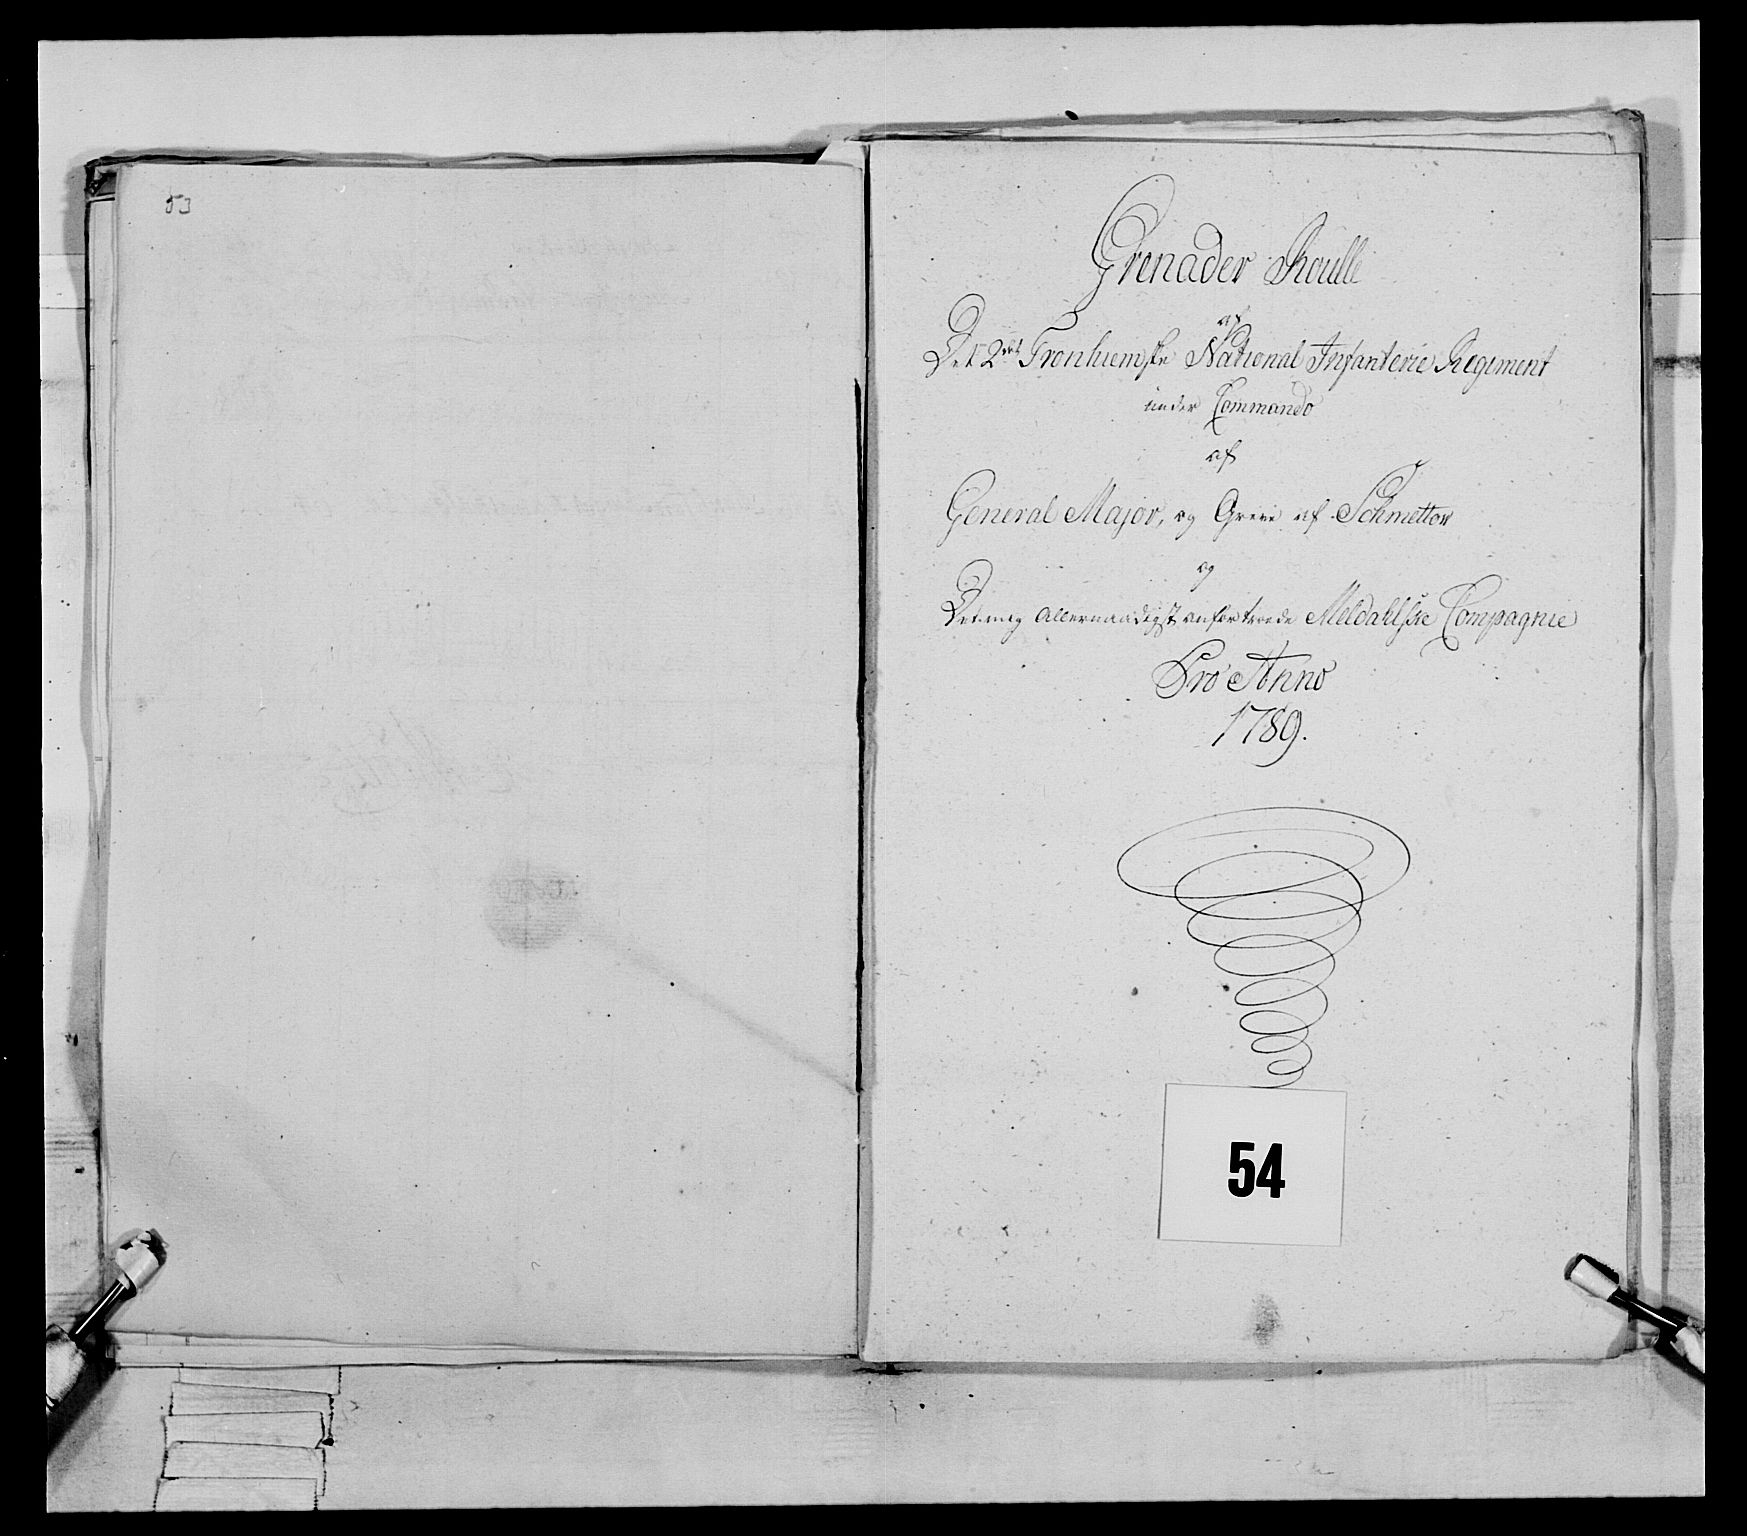 53
Grenader Roulle
af
Det 2det Tronhiemske National Infanterie Regiment
under Commando
af
General Major, og Greve af Schmettow
og
Det mig Allernaadigst anfortroede Meldahlske Compagnie
Pro Anno
1789.
54